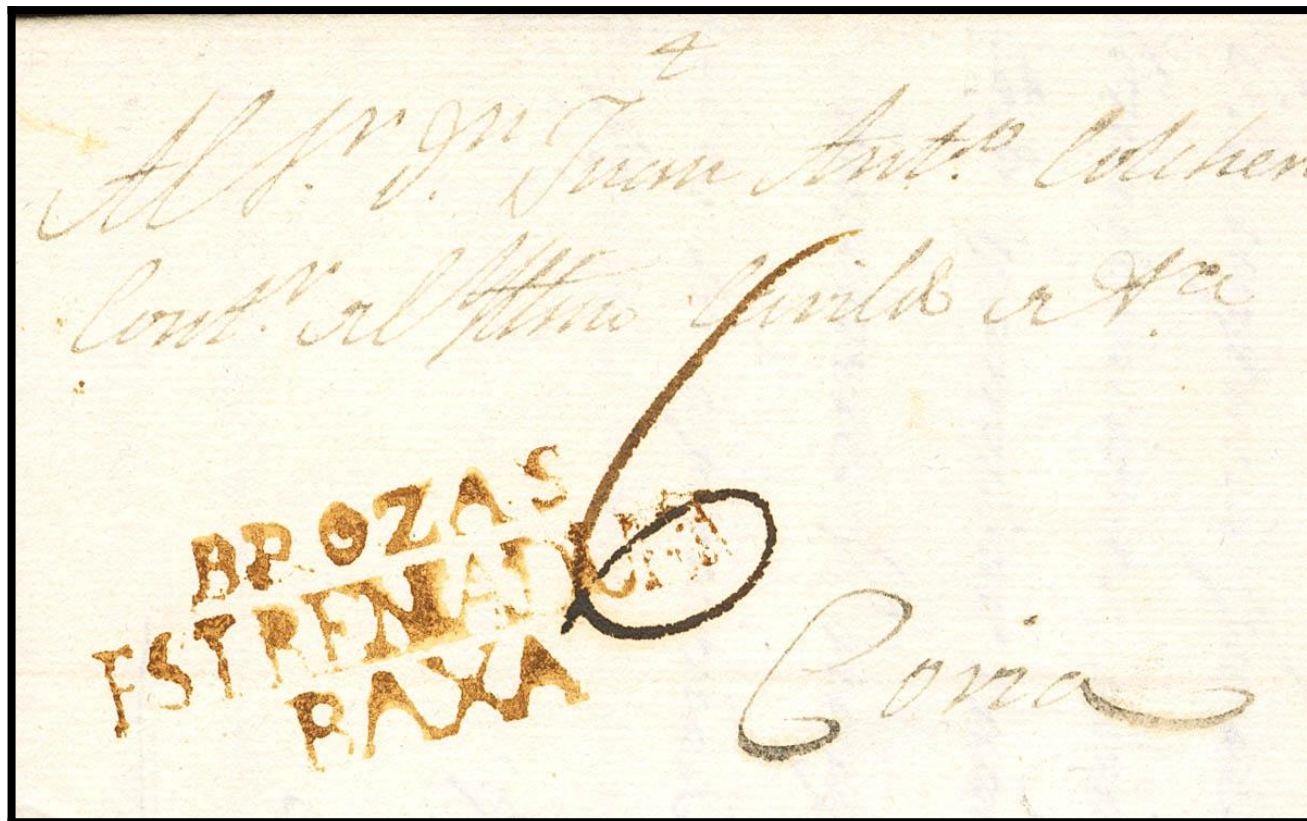 Al Sr. Dn. Juan Antº. Colchen
Cont.r el Yltmo Cavildo
6
BROZAS
ESTREMADURA
BAXA
Coria